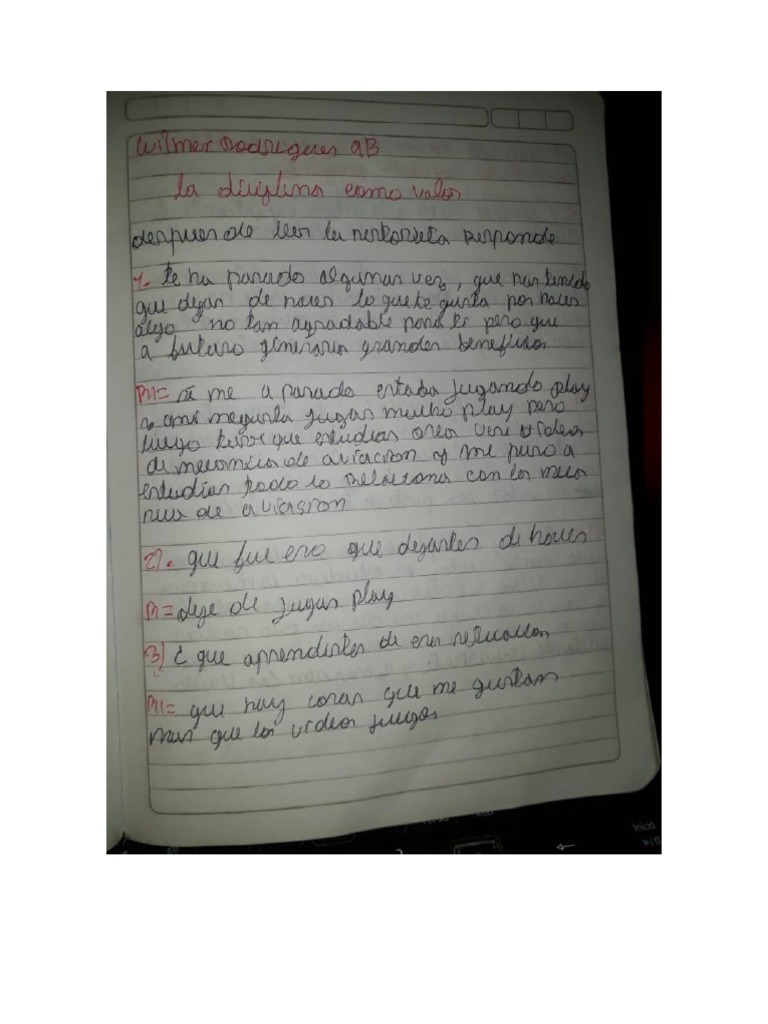 Wilmer Rodrigues 9B
la diciplina como valor
despues de leer la historieta responde
1- te ha pasado algunas vez, que has tenido
que dejar de hacer lo que te gusta por hacer
algo no tan agradable para ti pero que
a futuro generaria grandes beneficios
R//= si me a pasado estaba jugando play
ami me gusta jugar mucho play pero
luego tube que estudiar videos
de mecanica de aviacion y me puso a
estudiar todo lo relaciona con los meca
nicos de aviasion
2). que fue eso que dejastes de hacer
R//= deje de jugar play
3) ¿ que aprendistes de esa situacion
R//= que hay cosas que me gustan
mas que los videos juegos
Inicio